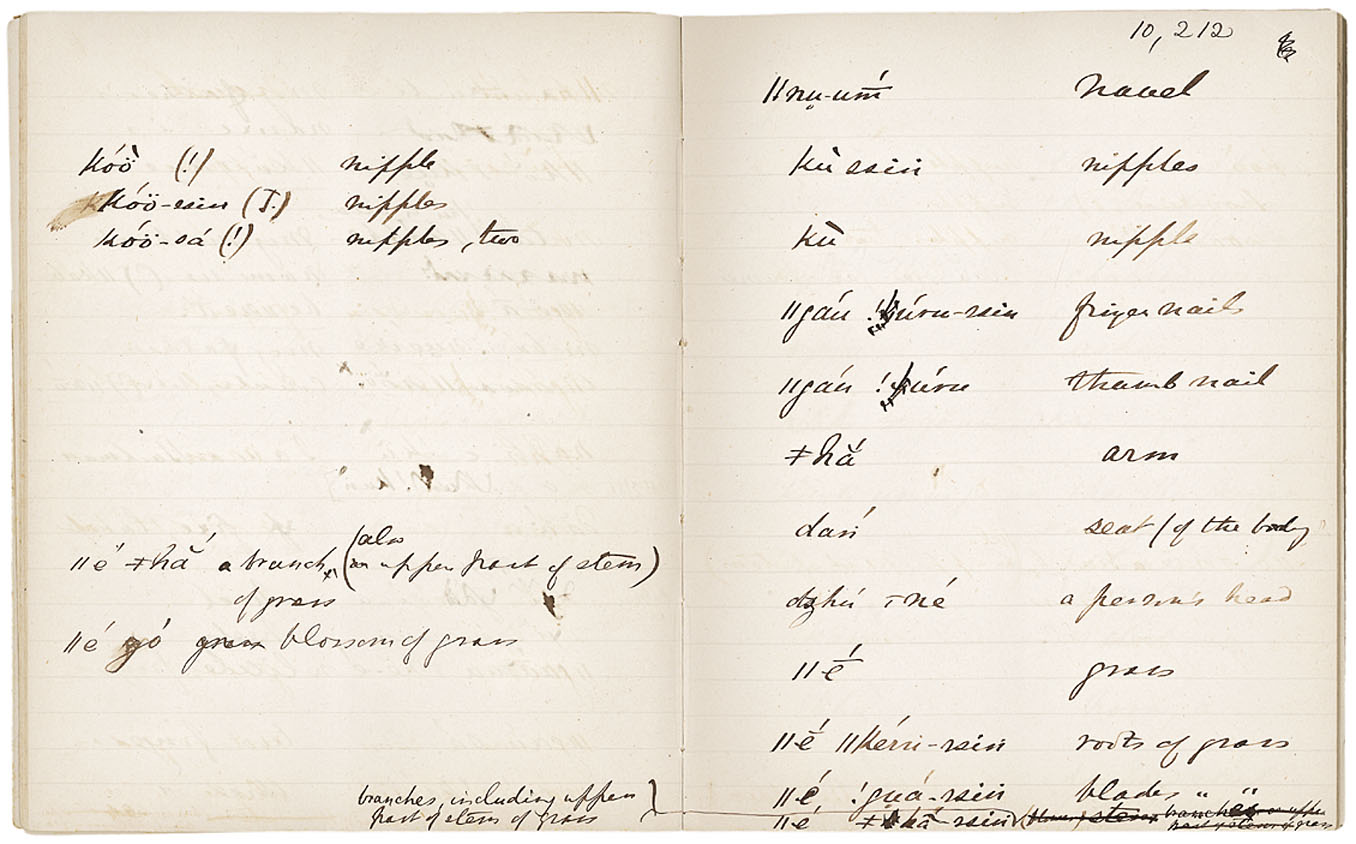 kóö̀ (!) nipple
kóö-ssin (T.) nipples
kóö-sá (!) nipples, two
(also
ǁé ǂhắ a branch, (an upper part of stem)
of grass
ǁé gó blossom of grass
branches, including upper }
part of stem of grass
10,212
ǁnu̥-uḿ navel
kù ssin nipples
kù nipple
ǁgáu !kúru-ssin finger nails
ǁgáu !kúru thumb nail
ǂhắ arm
dań seat (of the body
dzhú ꞇné a person's head
ǁé̄ grass
ǁé̄ ǁkérri-ssin roots of grass
ǁé̄ !guá-ssin blades " "
ǁé̄ ǂhā́-ssin branches or upper
part of stem of grass